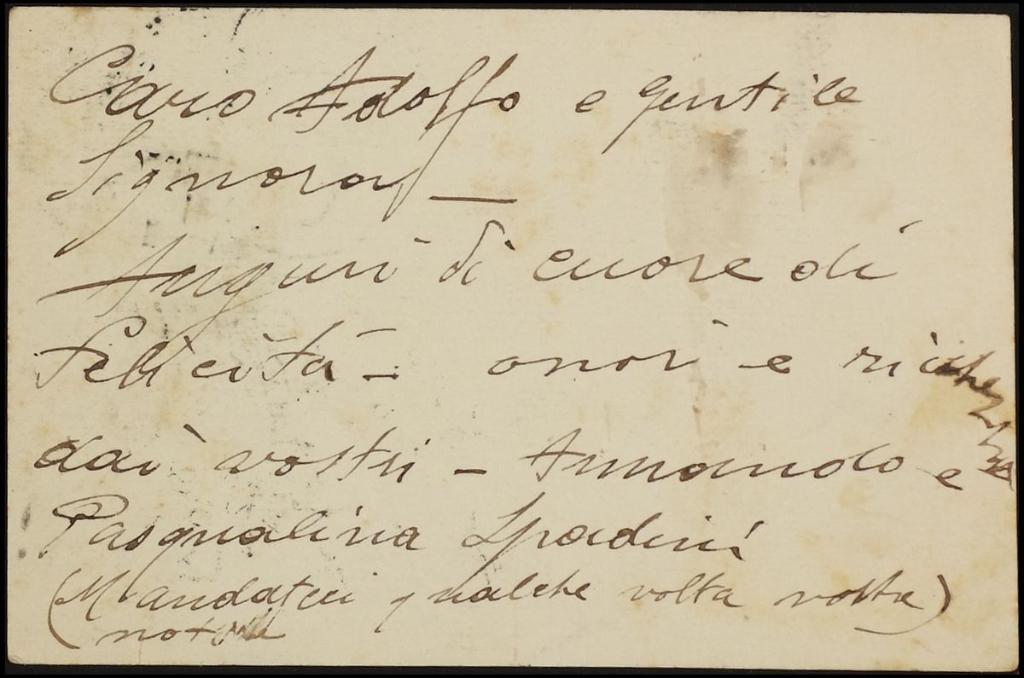 Caro Adolfo e gentile
Signora —
Auguri di cuore di
felicità - onori e ricchezze
dai vostri - Armando e
Pasqualina Spadini
(Mandateci qualche volta vostre)
notizie